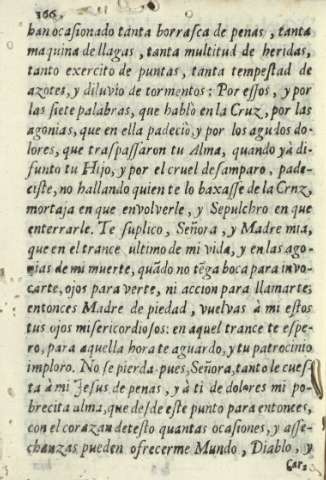 166
han ocasionado tanta borrasca de penas, tanta
maquina de llagas, tanta multitud de heridas,
tanto exercito de puntas, tanta tempestad de
azotes, y diluvio de tormentos: Por essos, y por
las siete palabras, que hablò en la Cruz, por las
agonias, que en ella padeciò, y por los agudos do-
lores, que traspassaron tu Alma, quando yà di-
funto tu Hijo, y por el cruel desamparo, pade-
ciste, no hallando quien te lo baxasse de la Crnz,
mortaja en que envolverle, y Sepulchro en que
enterrarle. Te suplico, Señora, y Madre mia,
que en el trance ultimo de mi vida, y en las ago-
nias de mi muerte, quãdo no tẽga boca para invo-
carte, ojos para verte, ni accion para llamarte,
entonces Madre de piedad, vuelvas à mi estos
tus ojos misericordiosos: en aquel trance te espe-
ro, para aquella hora te aguardo, y tu patrocinio
imploro. No se pierda pues, Señora, tanto le cues-
ta à mi Jesus de penas, y à ti de dolores mi po-
brecita alma, que desde este punto para entonces,
con el corazon detesto quantas ocasiones, y asse-
chanzas pueden ofrecerme Mundo, Diablo, y
Car-